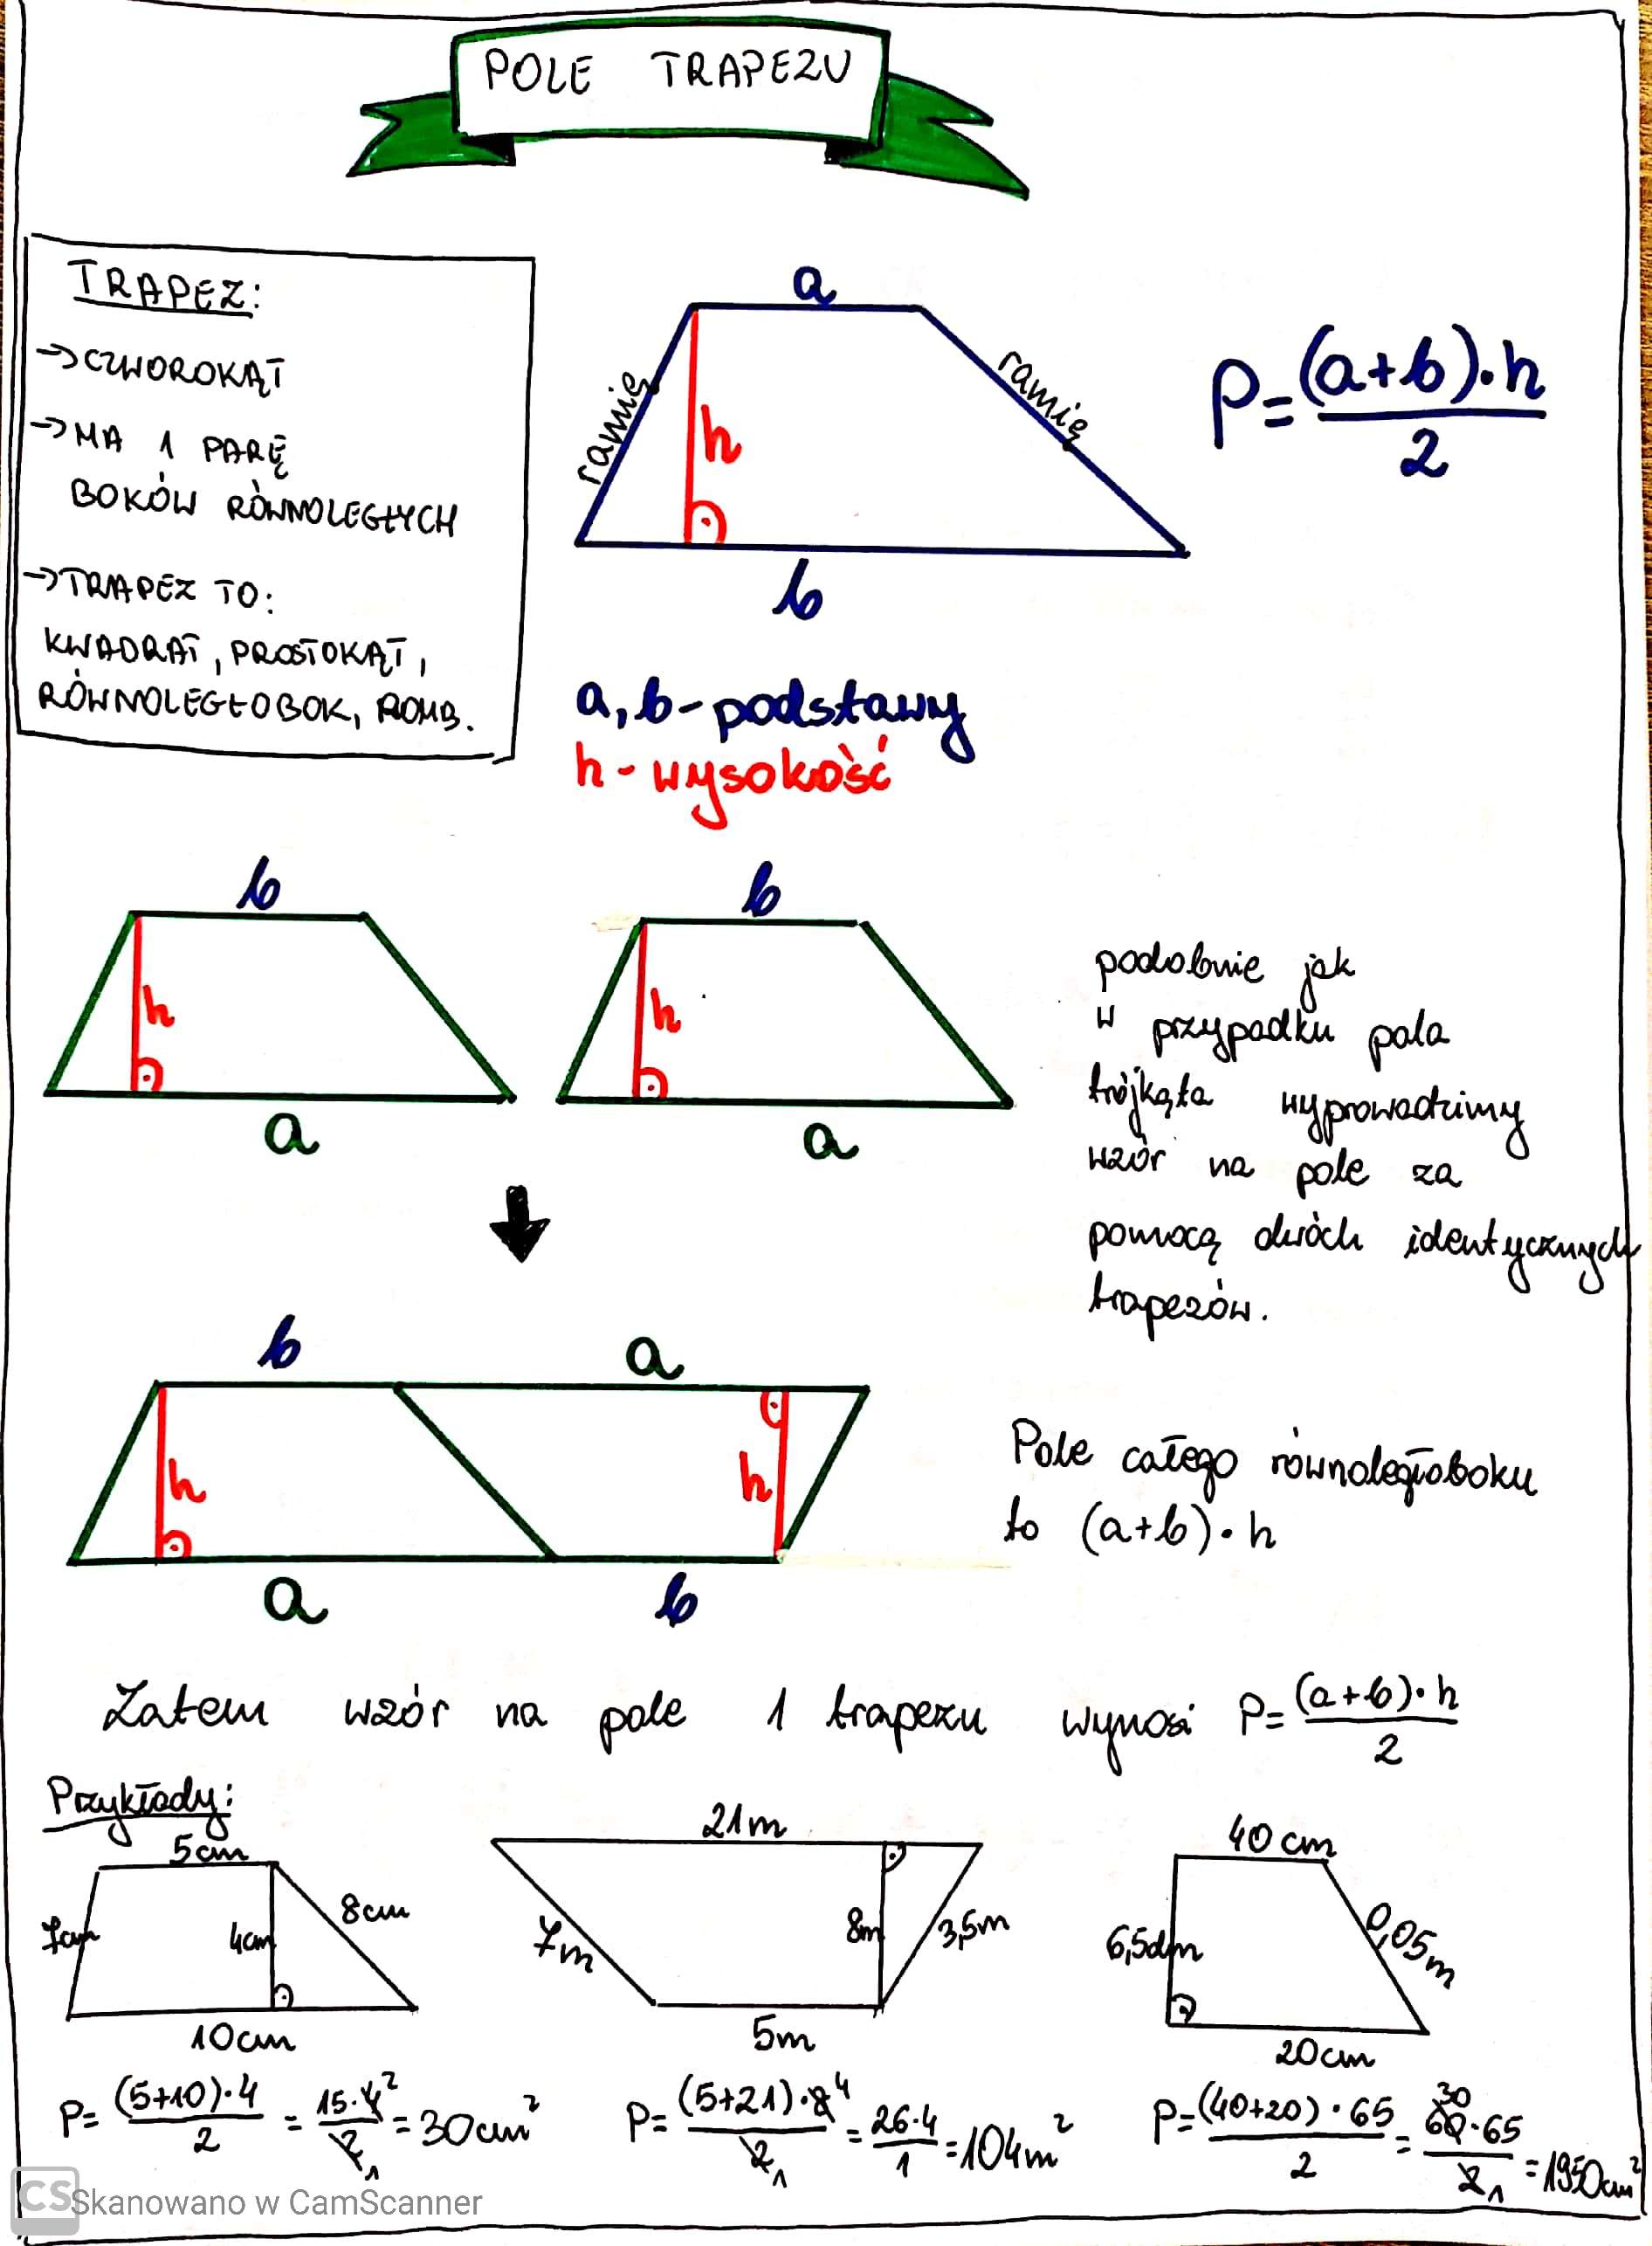 POLE TRAPEZU
TRAPEZ:
→ CZWOROKĄT
→ MA 1 PARĘ
BOKÓW RÓWNOLEGŁYCH
→ TRAPEZ TO:
KWADRAT, PROSTOKĄT,
RÓWNOLEGŁOBOK, ROMB.
a
ramię
h
ramię
b
P=(a+b)·h/2
a, b - podstawy
h - wysokość
b
h
a
b
h
a
podobnie jak
w przypadku pola
trójkąta wyprowadzimy
wzór na pole za
pomocą dwóch identycznych
trapezów.
b
a
h
h
a
b
Pole całego równoległoboku
to (a+b)·h
Zatem wzór na pole 1 trapezu wynosi P=(a+b)·h/2
Przykłady:
5cm
7cm
4cm
8cm
10cm
21m
7m
8m
3,5m
5m
40cm
6,5dm
0,05m
20cm
P=(5+10)·4/2 = 15·4²/2₁ = 30cm²
P=(5+21)·8⁴/2₁ = 26·4/1 = 104m²
P=(40+20)·65/2 = 60³⁰·65/2₁ = 1950cm²
CS Skanowano w CamScanner